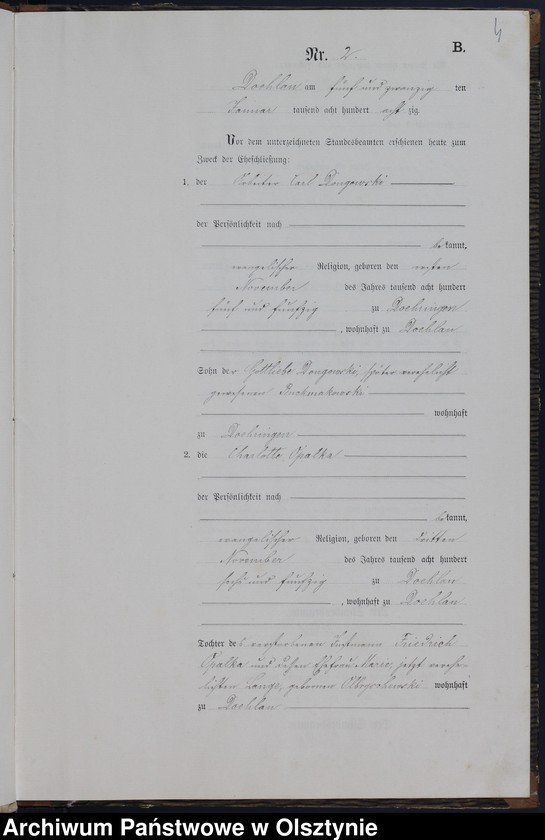 4
B.
Nr. 2.
Doehlau am fünf und zwanzig ten
Januar tausend acht hundert acht zig
Vor dem unterzeichneten Standesbeamten erschienen heute zum
Zweck der Eheschließung:
1. der Arbeiter Carl Dongowski
der Persönlichkeit nach
bekannt,
evangelischer Religion, geboren den ersten
November des Jahres tausend acht hundert
fünf und funfzig zu Doehringen
, wohnhaft zu Doehlau
Sohn der Gottliebe Dongowski, später verehelicht
gewesenen
wohnhaft
zu Doehringen
2. die Charlotte Opalka
der Persönlichkeit nach
bekannt,
evangelischer Religion, geboren den dritten
November des Jahres tausend acht hundert
sechs und funfzig zu Doehlau
, wohnhaft zu Doehlau
Tochter des verstorbenen Instmann Friedrich
Opalka und dessen Ehefrau Marie, jetzt verehe-
lichten Lange, geborenen wohnhaft
zu Doehlau
Archiwum Państwowe w Olsztynie